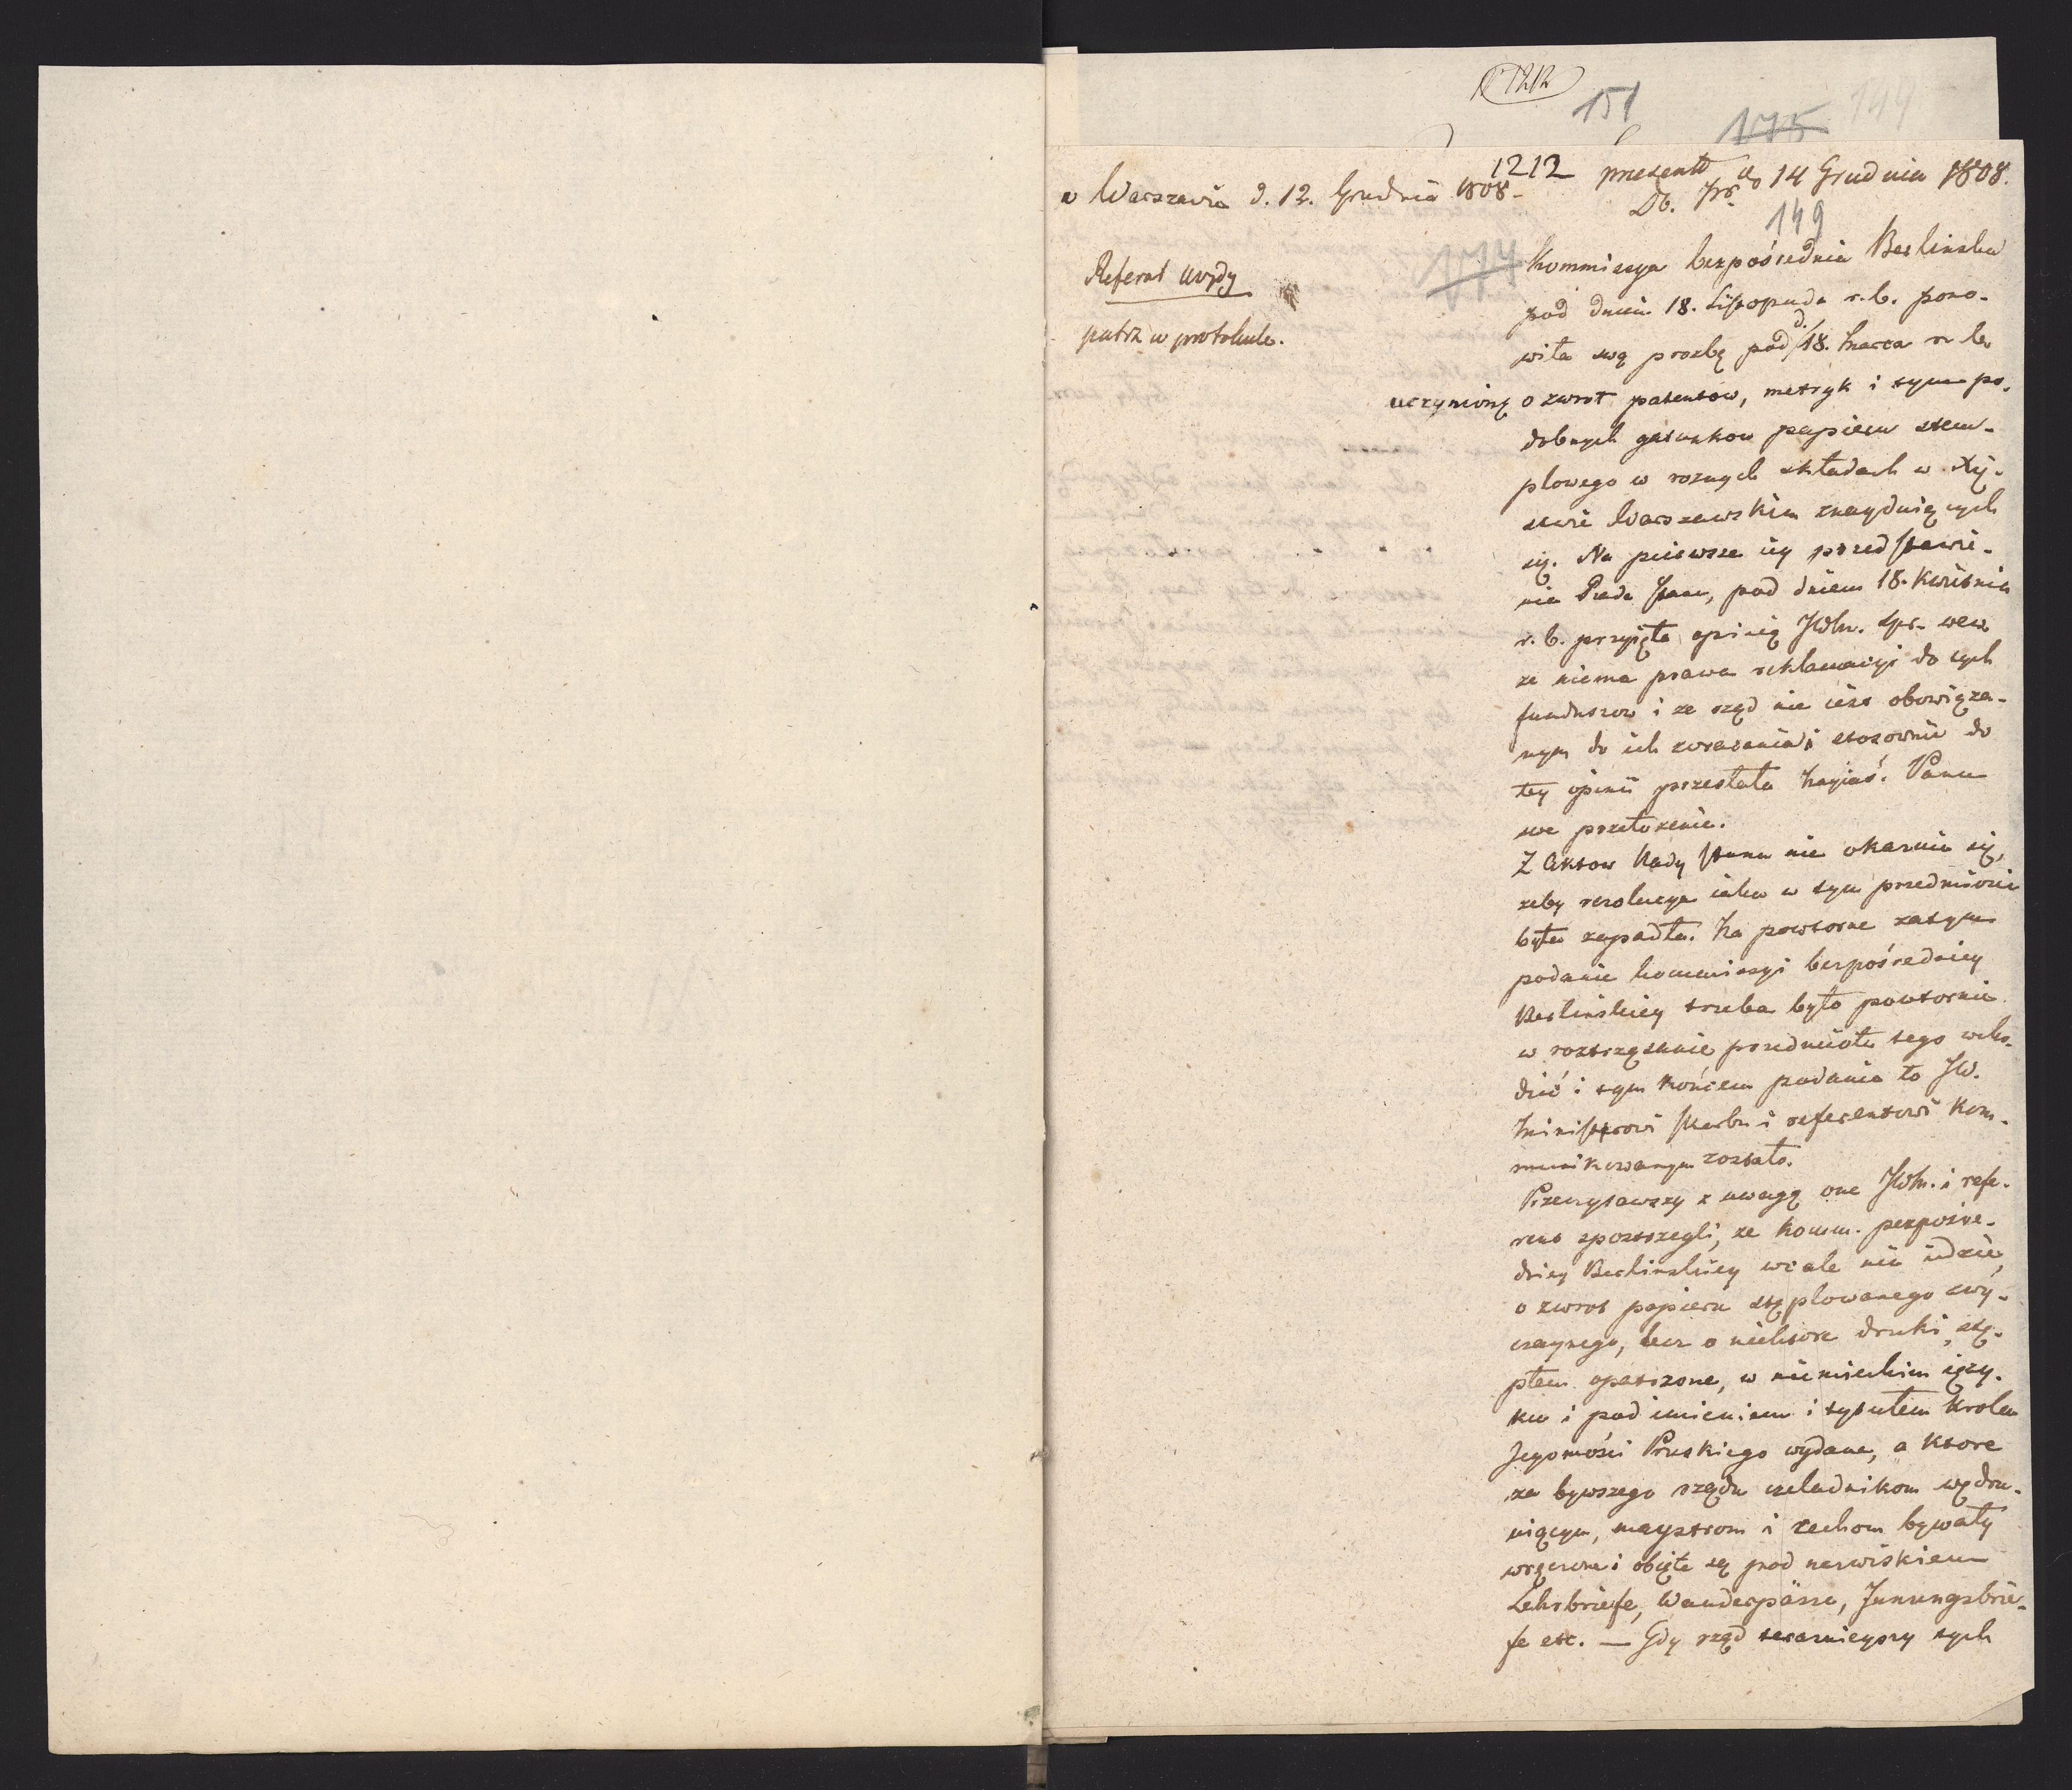 1212
151
175 144
1212 presento
w Warszawie d. 12. Grudnia 1808. Db. 14 Grudnia 1808.
149
174
Referat Uvydy
patrz w protokule.
Kommissya bezpośrednia Berlinska
pod dniem 18. Listopada r. b. pono-
wiła swą prozbę pod d. 18. Marca r. b.
uczynioną o zwrot patentow, metryk i tym po-
dobnych gatunkow papieru stem-
plowego w roznych składach w Xię-
stwie Warszawskim znayduiących
się. Na pierwsze iey przedstawie-
nia Rada Stanu, pod dniem 18. Kwietnia
r. b. przyięła opinią JWM. Spr. wew.
ze niema prawa reklamacyi do tych
funduszow i ze rząd nie iest obowiąza-
nym do ich zwracania i stosownie do
tey opinii przesłała Nayiaś. Panu
swe przełożenie.
Z Aktow Rady Stanu nie okazuie się,
zeby rezolucya iaka w tym przedmiocie
była zapadła. Na powtorne zatym
podanie kommissyi bezpośredniey
Berlińskiey trzeba było powtornie
w roztrząsanie przedmiotu tego wcho-
dzić i tym końcem podania to JW.
Ministrowi Skarbu i referentowi kom-
munikowanym zostało.
Przeczytawszy z uwagą one JWM. i refe-
rent spostrzegli, ze Komm. pezpośre-
dniey Berlinskiey wcale nie idzie,
o zwrot papieru stęplowanego zwy-
czaynego, lecz o niektore druki, stę-
plem opatrzone, w niemieckim ięzy-
ku i pod imieniem i tytułem Krola
Jegomości Pruskiego wydane, a ktore
za bywszego rządu czeladnikom wędru-
iącym, maystrom i cechom bywały
wręczone i obięte są pod nazwiskiem
Lehrbriefe, Wanderpässe, Innungsbrie-
fe etc. — Gdy rząd terazniejszy tych